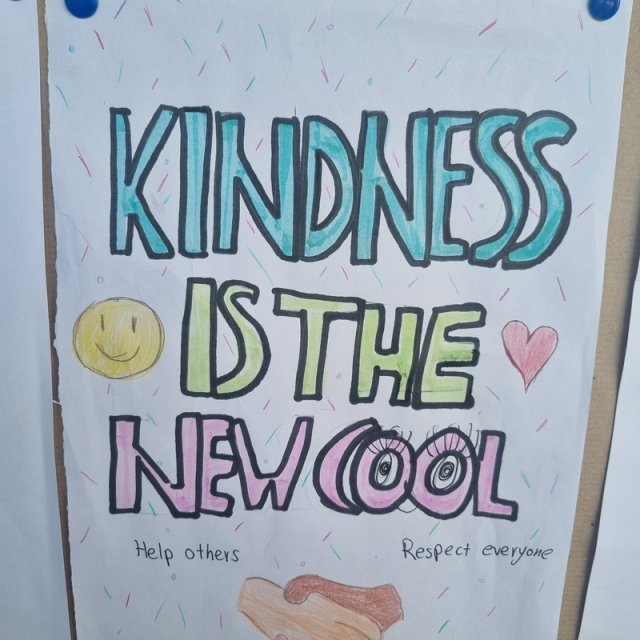 KINDNESS
IS THE
NEW COOL
Help others
Respect everyone